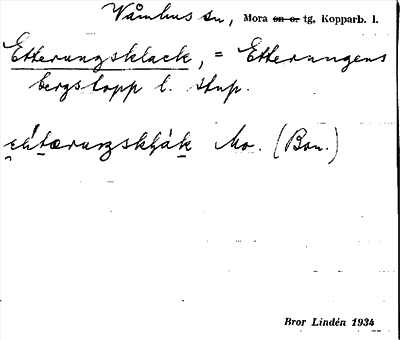 Våmhus sn, Mora sn o. tg, Kopparb. l.
Etterungsklack, = Etterungens
bergstopp l. stup.
Mo. (Bon.)
Bror Lindén 1934